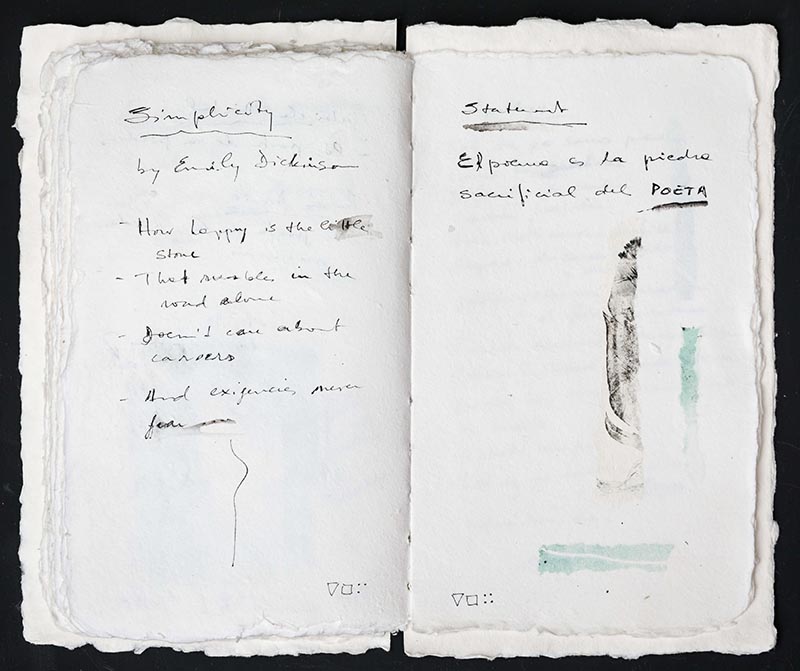 Simplicity
by Emily Dickinson
- How happy is the little
stone
- That rambles in the
road alone
- Doesn't care about
careers
- And exigencies never
fear
Statement
El poema es la piedra
sacrificial del POETA